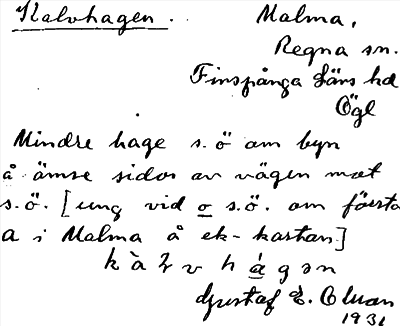 Kalvhagen. Malma,
Regna sn.
Finspånga läns hd
Ögl
Mindre hage s.ö om byn
å ömse sidor av vägen mot
s.ö. [ung vid o s.ö. om första
a i Malma å ek-kartan.]
k à l v h á g ə n
Gustaf E. Olman
1931